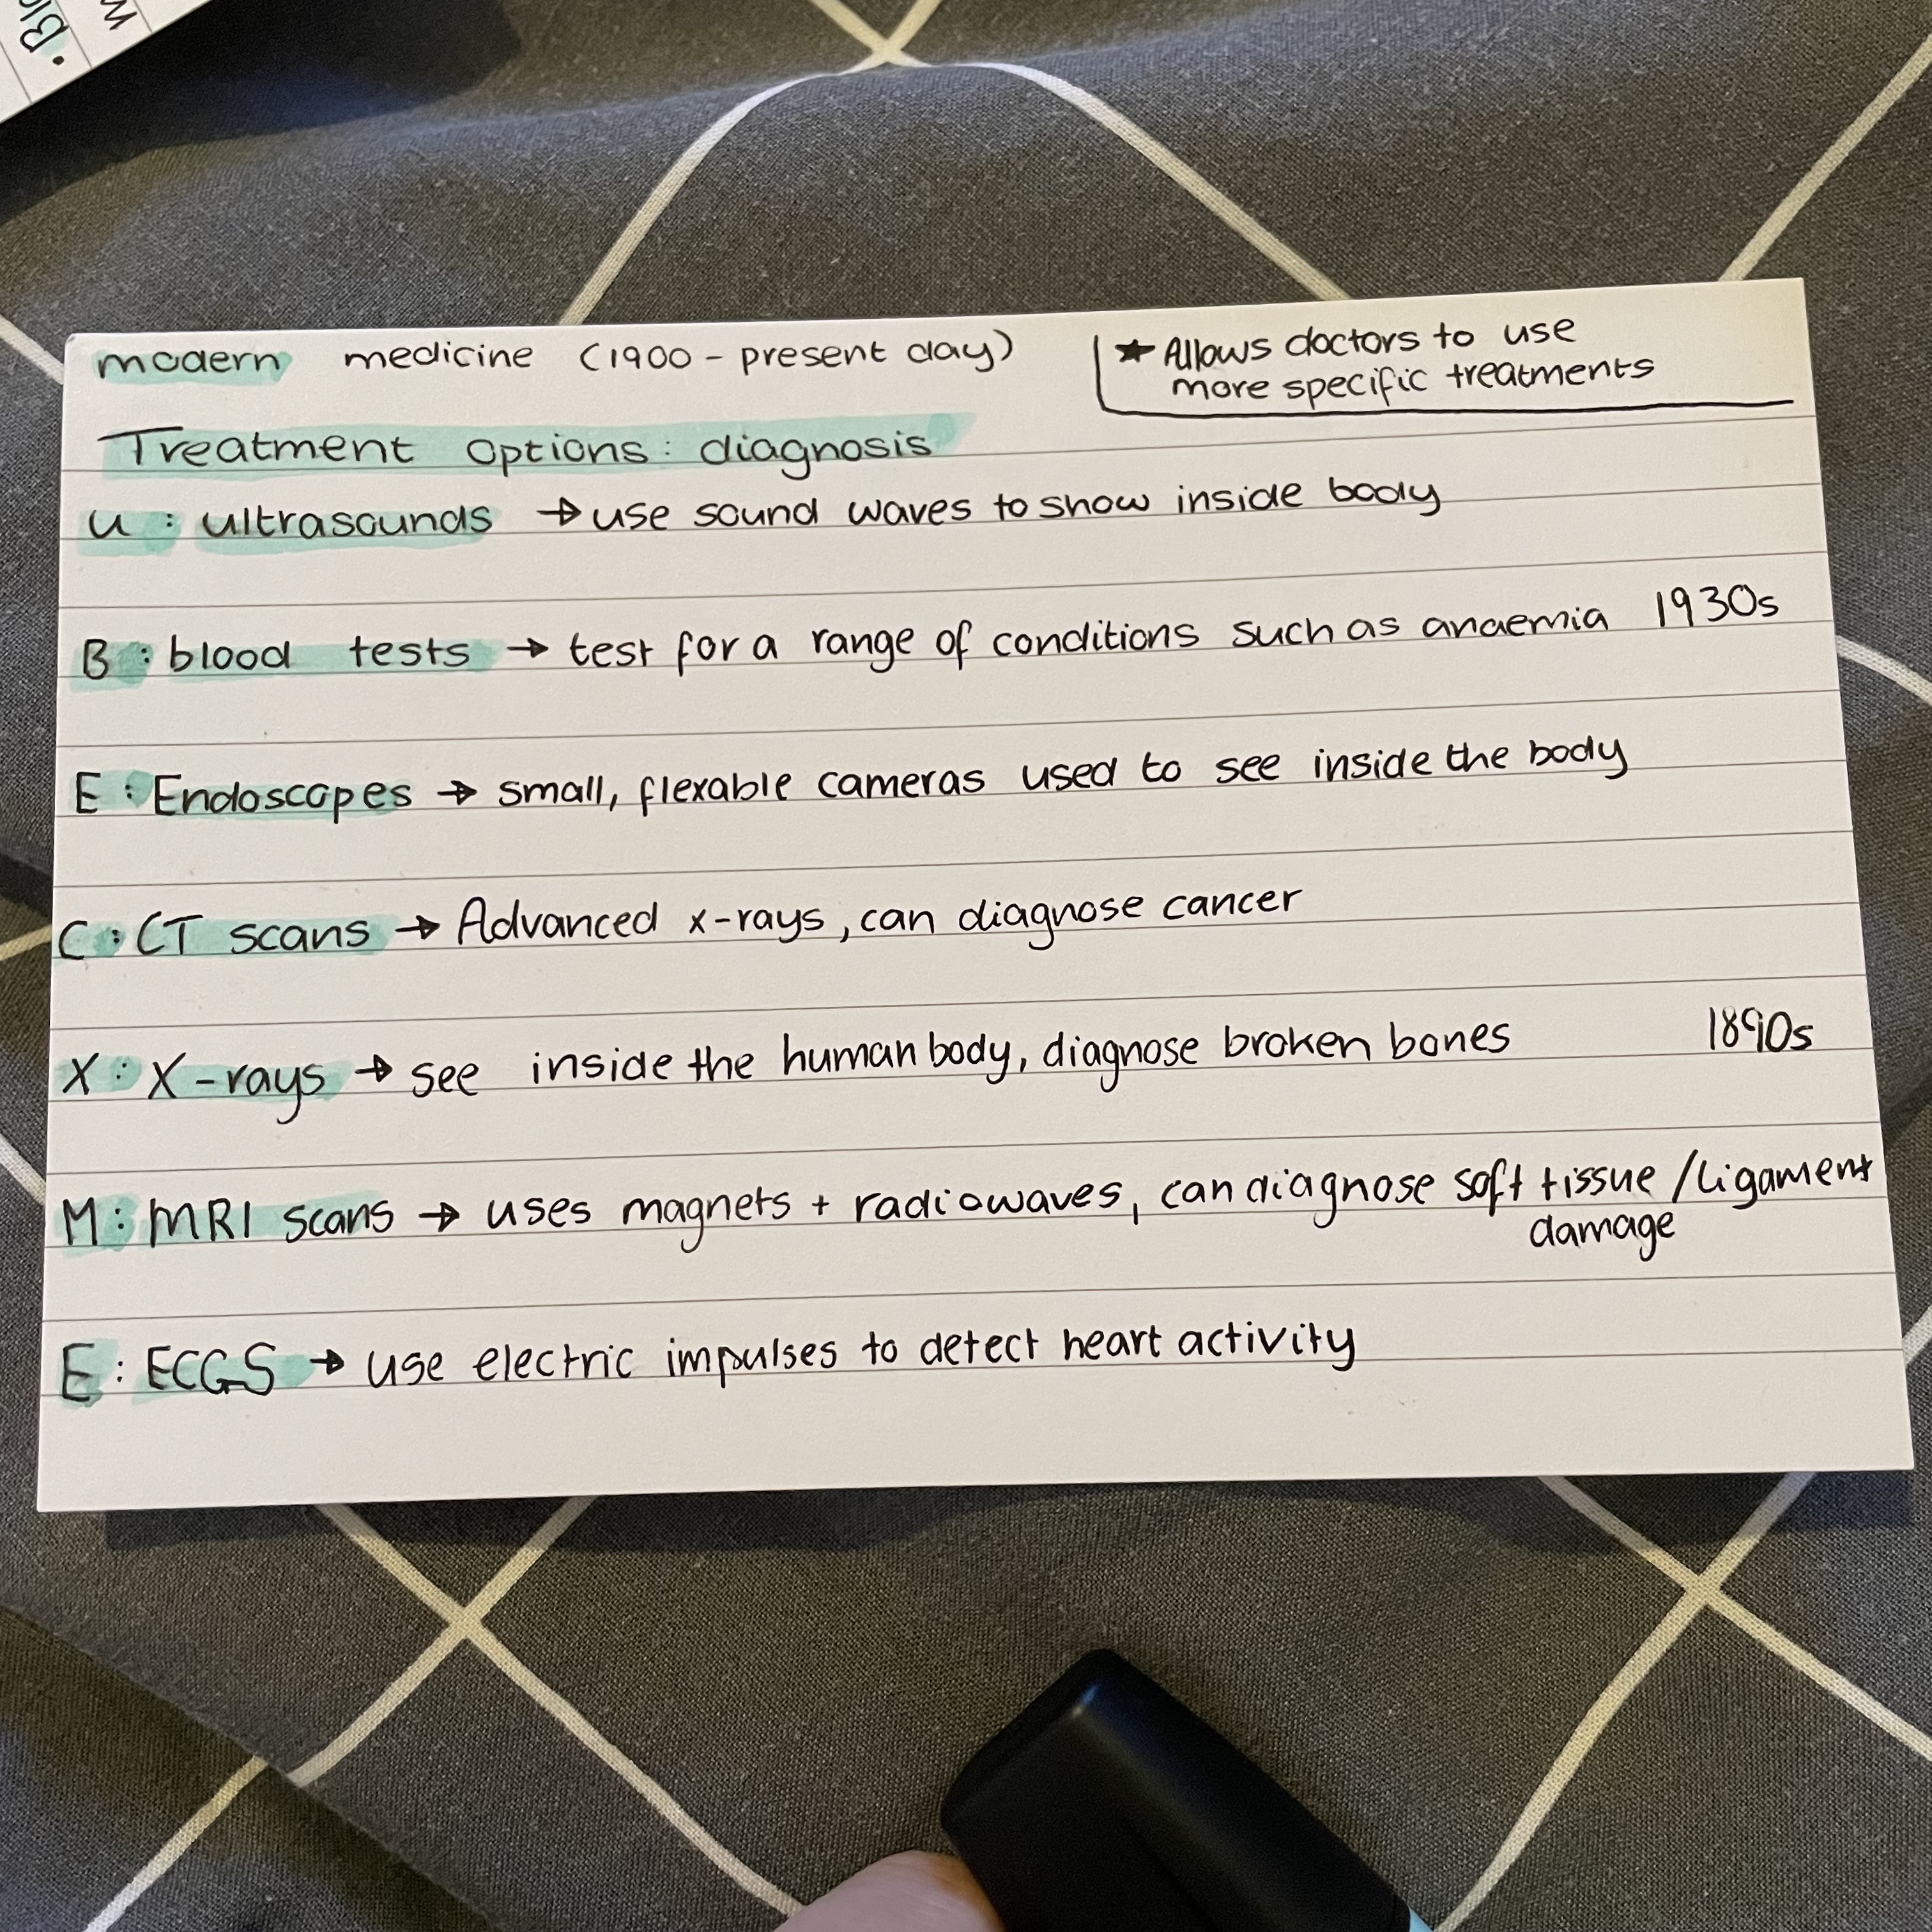 • Blo
w
modern medicine (1900 - present day)
★ Allows doctors to use
more specific treatments
Treatment options: diagnosis
U : ultrasounds → use sound waves to show inside body
B : blood tests → test for a range of conditions such as anaemia 1930s
E : Endoscopes → small, flexable cameras used to see inside the body
C : CT scans → Advanced x-rays, can diagnose cancer
X : X-rays → see inside the human body, diagnose broken bones 1890s
M : MRI scans → uses magnets + radiowaves, can diagnose soft tissue / ligament
damage
E : ECGS → use electric impulses to detect heart activity